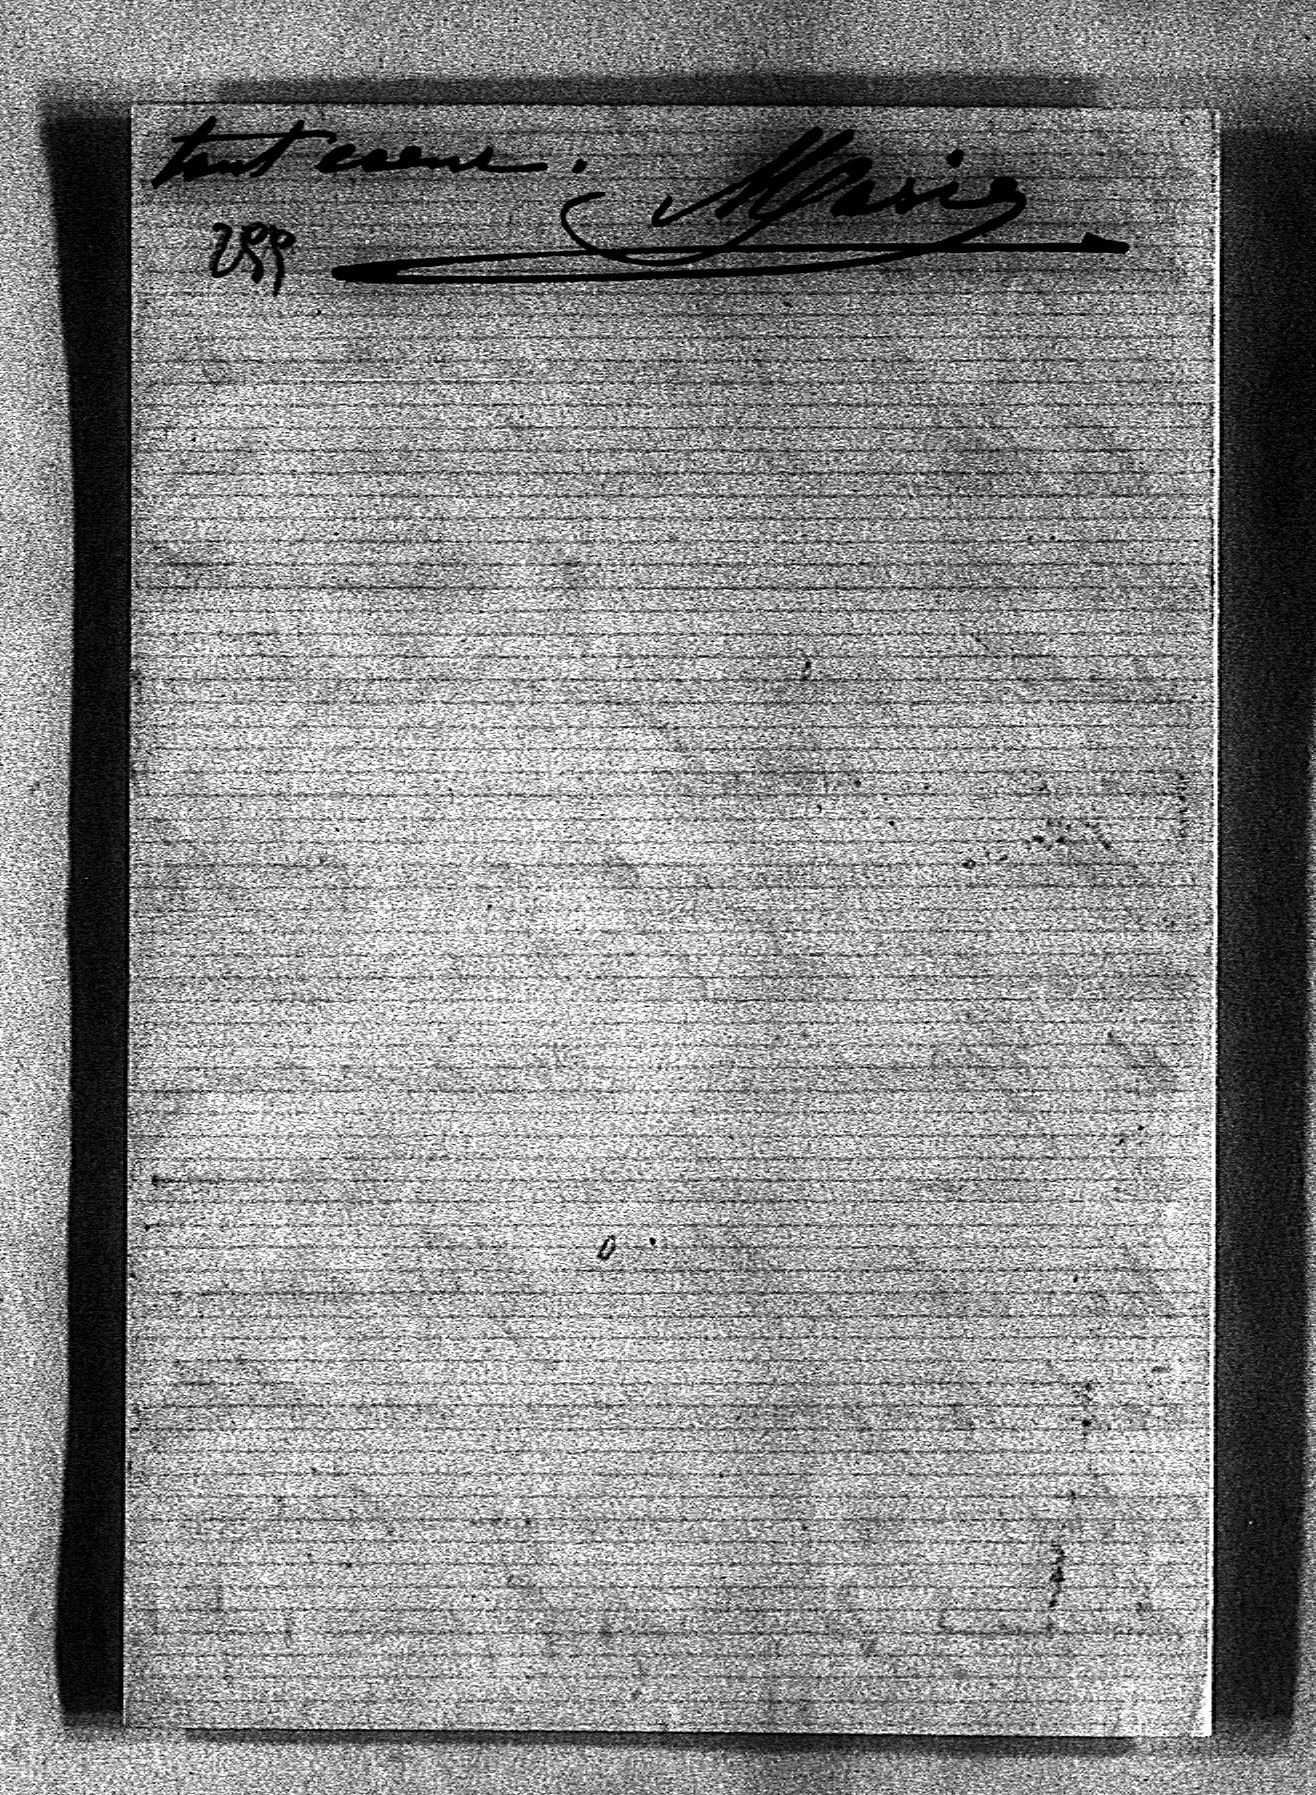 tout coeur. Marie
299